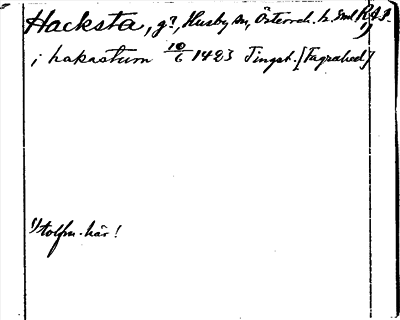 Hacksta, g?, Husby sn, Österreh. h. Sml RAP
1)
i hakastum 10/6 1423 Tingsh. [Fagrahed]
1) tolfm. här!